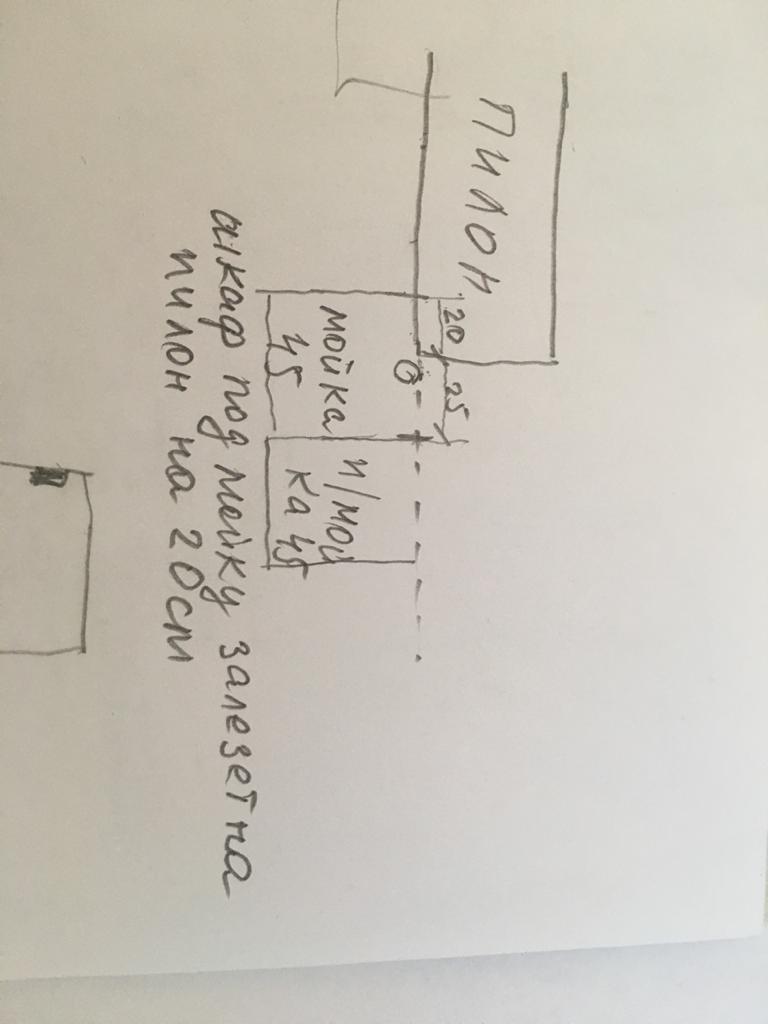 ПИЛОН
20
25
мойка
45
п/мой
ка 45
шкаф под мойку залезет на
пилон на 20см